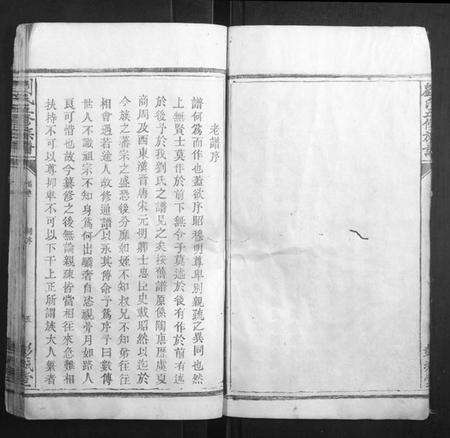 老譜序
譜何爲而作也蓋欲序昭穆明尊卑別親疏之異同也然
上無賢士莫作於前下無令子莫述於後有作於前有述
於後予於我劉氏之譜見之矣按舊譜原係陶唐歷虞夏
商周及西東漢晉唐宋元明鄉士惠臣史載昭然以迄於
今族之蕃宗之盛恐後分離如姪不知叔兄不知弟往往
相會遇若途人故修通譜以承其傳命予爲序予曰數傳
世人不識祖宗不知身爲何出驕者自恣視骨月如路人
良可惜也故今纂修之後無論親疏皆當相往來危難相
扶持不可以尊抑卑不可以下干上正所謂族大人衆者